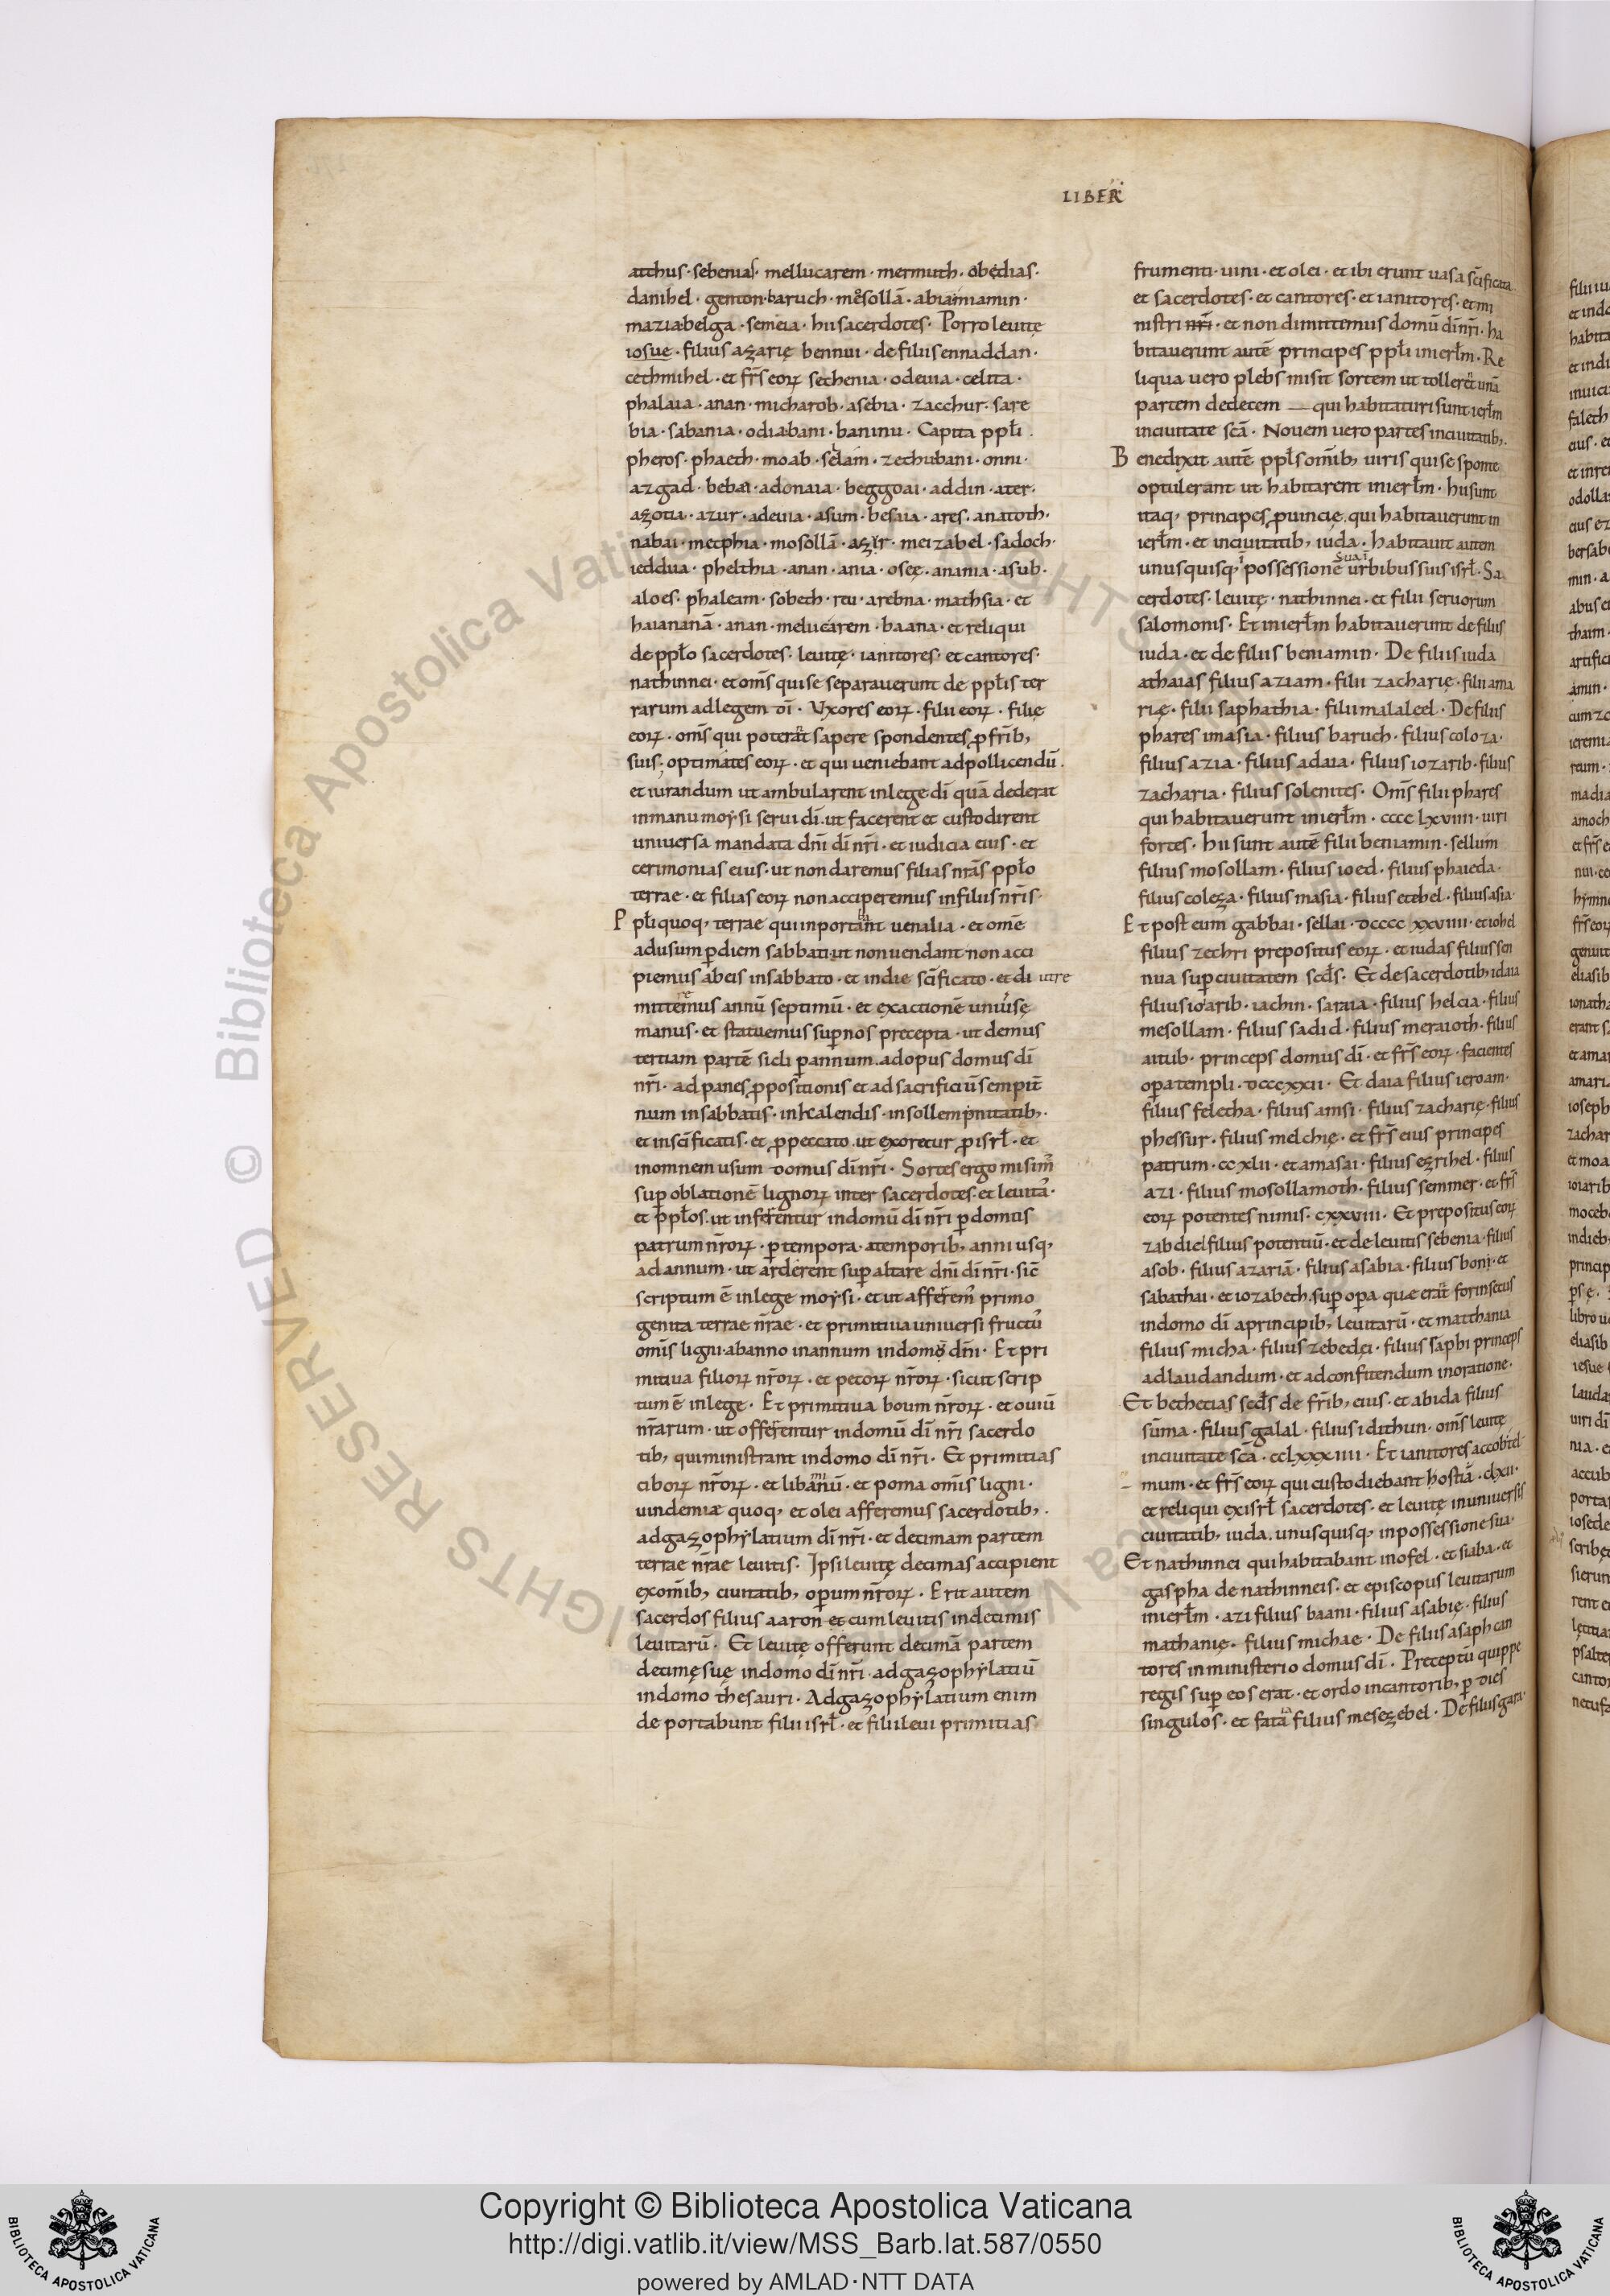 LIBER
atthus · sebenias · mellucarem · mermuth · obędias ·
danihel · genton · baruch · mesollā · abiamiamin ·
mazia · belga · semeia · hii sacerdotes · Porro leuitę
iosue · filius azarię bennui · de filiis ennaddan ·
cethmihel · et fr̄s eoꝝ sechenia · odeuia · celita ·
phalaia · anan · micharob · asebia · zacchur · sare
bia · sabania · odia · bani · baninu · Capita ppłi ·
pheros · phaeth · moab · selam · zechubani · onni ·
azgad · bebai · adonaia · beggoai · addin · ater ·
azotia · azur · adeuia · asum · besaia · ares · anatoth ·
nabai · mecphia · mosollā · azir · meizabel · sadoch ·
ieddua · phelthia · anan · ania · osee · anania · asub ·
aloes · phaleam · sobech · reu · arebna · mathsia · et
haiananā · anan · melucarem · baana · et reliqui
de ppło sacerdotes · leuitę · ianitores · et cantores ·
nathinnei · et om̄s qui se separauerunt de ppłis ter
rarum ad legem dī · Vxores eoꝝ · filii eoꝝ · filię
eoꝝ · om̄s qui poterant sapere spondentes ꝓ fr̄ib;
suis; optimates eoꝝ · et qui ueniebant ad pollicendū ·
et iurandum ut ambularent in lege dī quā dederat
in manu moysi serui dī · ut facerent et custodirent
uniuersa mandata dn̄i dī nr̄i · et iudicia eius · et
cerimonias eius · ut non daremus filias nr̄as ppło
terrae · et filias eoꝝ non acciperemus in filiis nr̄is ·
Ppłi quoq; terrae qui inportant uenalia · et omē
ad usum ꝑ diem sabbati · ut non uendant non acci
piemus ab eis in sabbato · et in die sc̄ificato · et di
mittemus annū septimū · et exactionē uniuersę
manus · et statuemus suꝑ nos precepta · ut demus
tertiam partē sicli ꝑ annum · ad opus domus dī
nr̄i · ad panes ꝓpositionis et ad sacrificiū sempit̄
num in sabbatis · in kalendis · in sollempnitatib; ·
et in sc̄ificatis · et ꝓ peccato · ut exoretur ꝓ isrł · et
in omnem usum domus dī nr̄i · Sortes ergo misim᷒
suꝑ oblationē lignoꝝ inter sacerdotes · et leuitas ·
et ppłos · ut inferentur in domū dī nr̄i ꝑ domus
patrum nr̄oꝝ · ꝑ tempora · a temporib; anni usq;
ad annum · ut arderent suꝑ altare dn̄i dī nr̄i · sic̄
scriptum ē in lege moysi · et ut afferem᷒ primo
genita terrae nr̄ae · et primitiua uniuersi fructu᷒
om̄is ligni · ab anno in annum in domo dn̄i · Et pri
mitiua filioꝝ nr̄oꝝ · et pecoꝝ nr̄oꝝ · sicut scrip
tum ē in lege · Et primitiua boum nr̄oꝝ · et ouiū
nr̄arum · ut offerentur in domū dī nr̄i sacerdo
tib; qui ministrant in domo dī nr̄i · Et primitias
ciboꝝ nr̄oꝝ · et libaminū · et poma om̄is ligni ·
uindemiæ quoq; et olei afferemus sacerdotib; ·
ad gazophylatium dī nr̄i · et decimam partem
terrae nr̄ae leuitis · Ipsi leuitę decimas accipient
ex om̄ib; ciuitatib; oꝑum nr̄oꝝ · Erit autem
sacerdos filius aaron et cum leuitis in decimis
leuitarū · Et leuitę offerunt decimā partem
decimę suę in domo dī nr̄i · ad gazophylatiū
in domo thesauri · Ad gazophylatium enim
deportabunt filii isrł · et filii leui primitias
frumenti · uini · et olei · et ibi erunt uasa sc̄ificata
et sacerdotes · et cantores · et ianitores · et mi
nistri nr̄i · et non dimittemus domū dī nr̄i · ha
bitauerunt autē principes ppłi in ierłm · Re
liqua uero plebs misit sortem ut tollerent unā
partem de decem — qui habitaturi sunt ierłm
in ciuitate sc̄a · Nouem uero partes in ciuitatib; ·
Benedixit autē ppłs om̄ib; uiris qui se sponte
optulerant ut habitarent in ierłm · hii sunt
itaq; principes ꝓuincię · qui habitauerunt in
ierłm · et in ciuitatib; iuda · habitauit autem
unusquisq; possessionē urbibus suis isrł · Sa
cerdotes · leuitę · nathinnei · et filii seruorum
salomonis · Et in ierłm habitauerunt de filiis
iuda · et de filiis beniamin · De filiis iuda
athaias filius aziam · filii zacharię · filii ama
rię · filii saphathia · filii malaleel · De filiis
phares imasia · filius baruch · filius coloza ·
filius azia · filius adaia · filius iozarib · filius
zacharia · filius solenites · Om̄s filii phares
qui habitauerunt in ierłm · cccc lxviiii · uiri
fortes · hii sunt autē filii beniamin · sellum
filius mosollam · filius ioed · filius phaieda ·
filius coleza · filius masia · filius etehel · filius asia ·
Et post eum gabbai · sellai · dcccc xxviiii · et iohel
filius zechri prepositus eoꝝ · et iudas filius sen
nua suꝑ ciuitatem scđs · Et de sacerdotib; idaia
filius ioarib · iachin · saraia · filius helcia · filius
mesollam · filius sadid · filius meraioth · filius
aitub · princeps domus dī · et fr̄s eoꝝ · facientes
oꝑa templi · dcccxxii · Et daia filius ieroam ·
filius felecha · filius amsi · filius zacharię · filius
phessur · filius melchię · et fr̄s eius principes
patrum · cc xlii · et amasai · filius ezrihel · filius
azi · filius mosollamoth · filius semmer · et fr̄s
eoꝝ potentes nimis · cxxviii · Et prepositus eoꝝ
zabdiel filius potentiū · et de leuitis sebenia · filius
asob · filius azariā · filius asabia · filius boni · et
sabathai · et iozabeth · suꝑ oꝑa quæ erant forinsecus
in domo dī a principib; leuitarū · et matthania
filius micha · filius zebedei · filius saphi princeps
ad laudandum · et ad confitendum in oratione ·
Et bethecias scđs de fr̄ib; eius · et abida filius
sūma · filius galal · filius idithun · om̄s leuitę
in ciuitate sc̄a · cclxxxiiii · Et ianitores accobtel
mum · et fr̄s eoꝝ qui custodiebant hostiā · clxii ·
et reliqui ex isrł sacerdotes · et leuitę in uniuersis
ciuitatib; iuda · unusquisq; in possessione sua ·
Et nathinnei qui habitabant in ofel · et siaba · et
gaspha de nathinneis · et episcopus leuitarum
in ierłm · azi filius baani · filius asabię · filius
mathanię · filius michae · De filiis asaph can
tores in ministerio domus dī · Preceptū quippe
regis suꝑ eos erat · et ordo in cantorib; ꝑ dies
singulos · et fatā filius mesezebel · De filiis gara ·
Copyright © Biblioteca Apostolica Vaticana
http://digi.vatlib.it/view/MSS_Barb.lat.587/0550
powered by AMLAD · NTT DATA